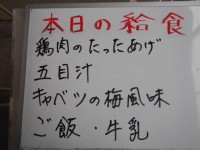 本日の給食
鶏肉のたったあげ
五目汁
キャベツの梅風味
ご飯・牛乳